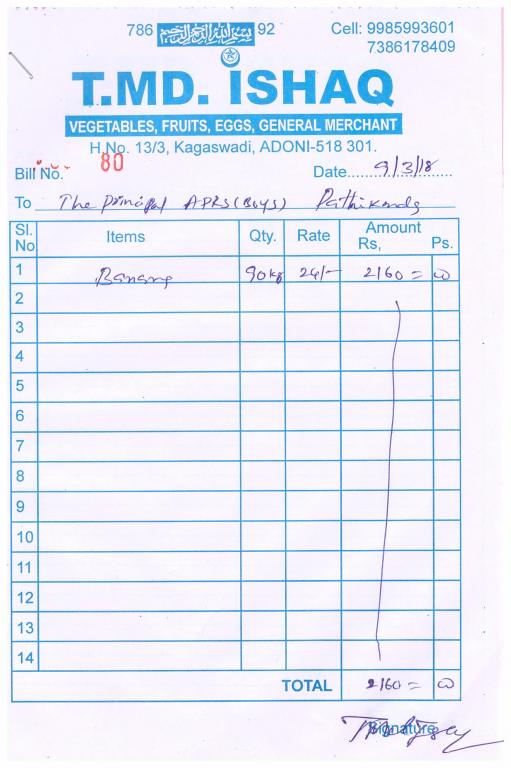 786 بسم الله الرحمن الرحيم 92
Cell: 9985993601
7386178409
T.MD. ISHAQ
VEGETABLES, FRUITS, EGGS, GENERAL MERCHANT
H.No. 13/3, Kagaswadi, ADONI-518 301.
Bill No. 80 Date 9/3/18
To The principal APRS (Boys) Pathikonda
Sl. No Items Qty. Rate Amount Rs, Ps.
1 Banana 90 kg 24/- 2160 = 00
2
3
4
5
6
7
8
9
10
11
12
13
14
TOTAL 2160 = 00
Signature